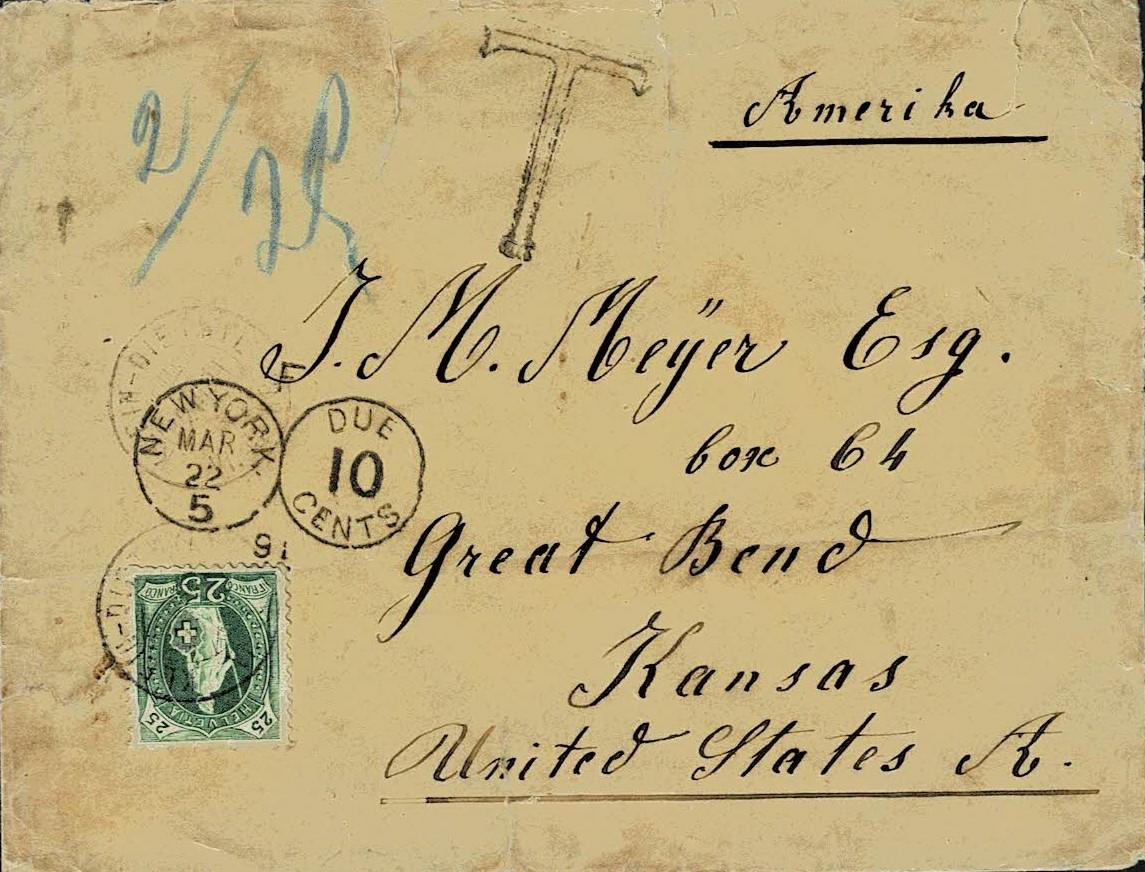 T
Amerika
2/25
J. M. Meÿer Esq.
box 64
Great Bend
Kansas
United States A.
NEW YORK
MAR
22
5
91
DUE
10
CENTS
25
FRANCO FRANCO
HELVETIA
25 25